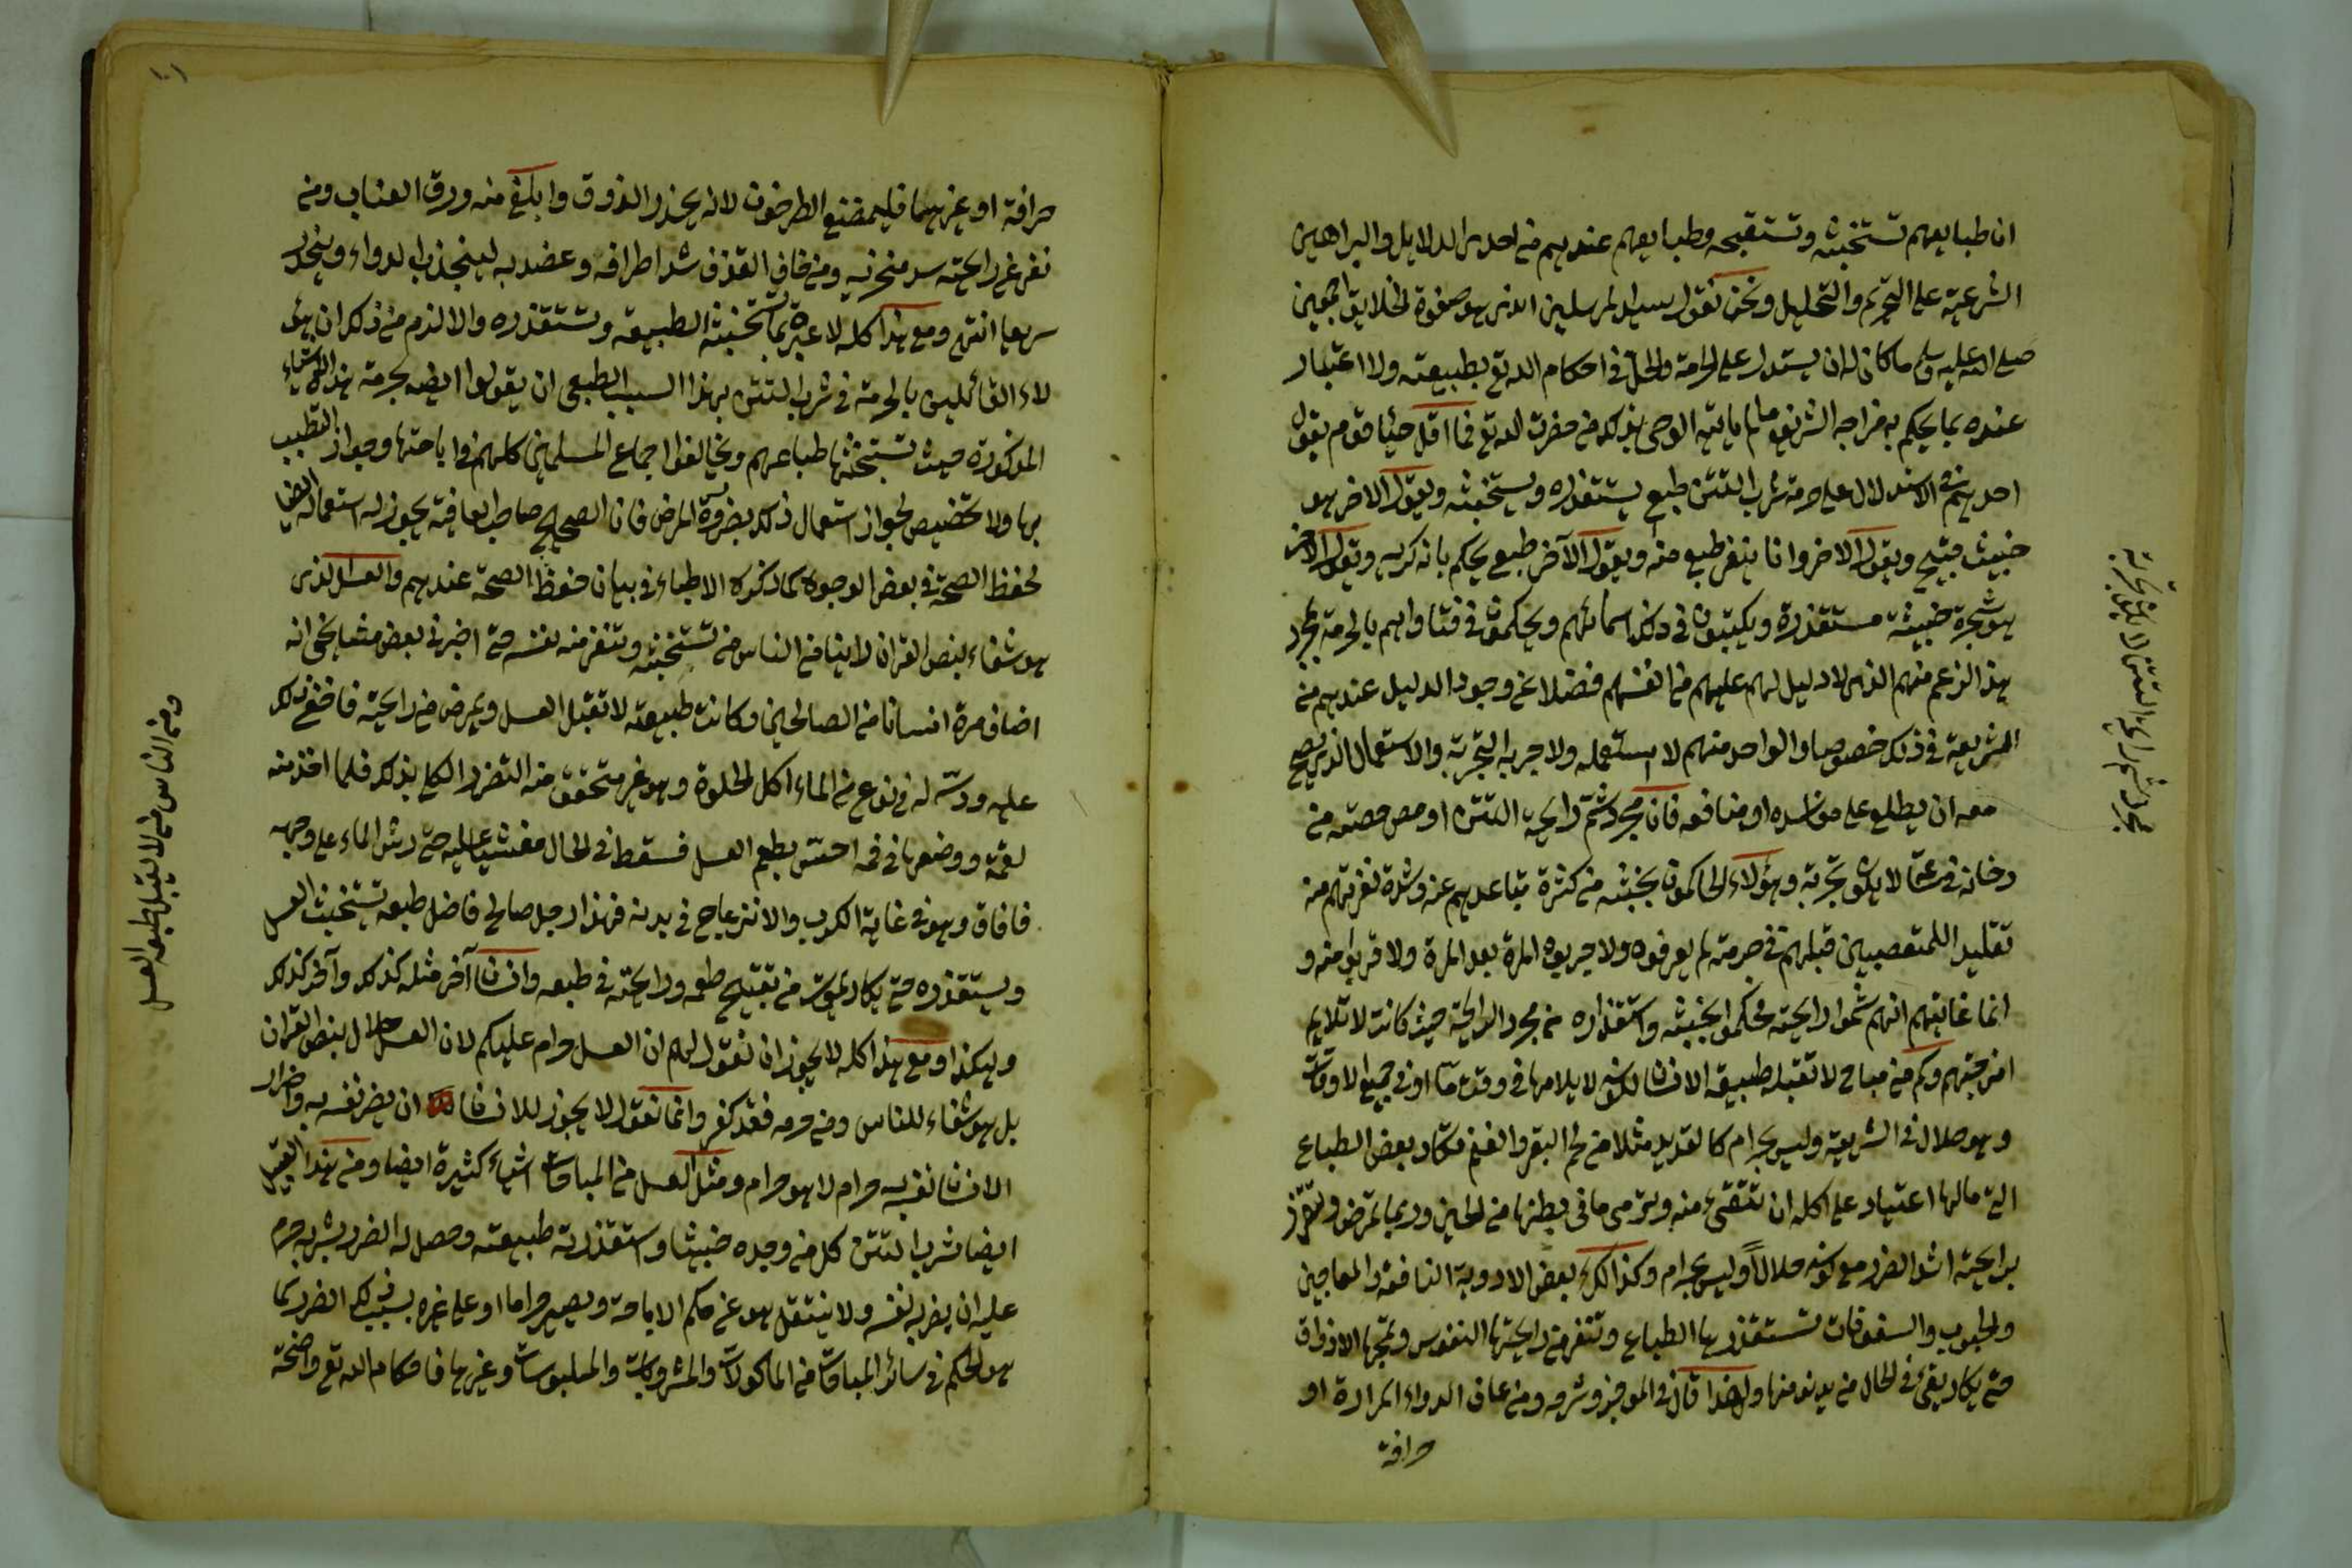 ان طبايعهم تستخبثه وتستقبحه وطبايعهم عندهم من احدى الدلايل والبراهين
الشرعية على التحريم والتحليل ونحن نقول سيد المرسلين الذي هو صفوة الخلايق اجمعين
صلى الله عليه وسلم ما كان له ان يستدل على الحرمة والحل في احكام الله تع بطبيعته ولا اعتبار
عنده بما يحكم به مزاجه الشريف ما لم ياتيه الوحى بذلك من حضرت الله تع فما اقل حياء قوم يقول
احدهم في الاستدلال على حرمة شرب التتن طبعي يستقذره ويستخبثه ويقول الاخر هو
خبيث قبيح ويقول الاخر وانا ينفر طبعي منه ويقول الآخر طبعي يحكم بانه كريه ويقول الآخر
هو شجرة خبيثة مستقذرة ويكتبون في ذلك اسمائهم ويحكمون في فتاواهم بالحرمة بمجرد
هذا الزعم منهم الذي لا دليل لهم عليهم من انفسهم فضلا عن وجود الدليل عندهم من
الشريعة في ذلك خصوصا والواحد منهم لا استعمله ولا جربه التجربة والاستعمال الذي يصح
معه ان يطلع على مفاسده او منافعه فان مجرد شم رايحة التتن او مص مصته من
دخانه في ساعة لا يكون تجربة وهؤلاء الحاكمون بخبثه من كثرة تباعدهم عنه وشدة نفرتهم منه
تقليدا للمتعصبين قبلهم في حرمته لم يعرفوه ولا جربوه المرة بعد المرة ولا قربوا منه و
انما غايتهم انهم شموا رايحته فحكموا بخبثه واستقذاره من مجرد الرايحة حيث كانت لا تلايم
امزجتهم وكم من مباح لا تقبله طبيعة الانسان لكونه لا يلايمها في وقت ما او في جميع الاوقات
وهو حلال في الشريعة وليس بحرام كالقديد مثلا من لحم البقر والغنم فتكاد بعض الطباع
التي مالها اعتياد على اكله ان تتقئ منه وترمى ما في بطنها من الحين وربما تمرض وتتضرر
برايحته اشد الضرر مع كونه حلالاً وليس بحرام وكذلك بعض الادوية النافعة والمعاجين
والحبوب والسفوفات تستقذرها الطباع وتنفر من رايحتها النفوس وتمجها الاذواق
حتى يكاد يقئ في الحال من يدنو منها ولهذا قال في الموجز وشرحه ومن عاف الدواء لمرارة او
حرافة
مجرد شم رايحة التتن لا يكون تجربة
حرافة او غيرهما فليمضغ الطرخون لانه يخدر الذوق وابلغ منه ورق العناب ومن
نفر عن رايحته سد منخريه ومن خاف القذف شد اطرافه وعضديه لينجذب الدواء وينحدر
سريعا انتهى ومع هذا كله لا عبرة بما تستخبثه الطبيعة وتستقذره والا لزم من ذلك ان هؤ
لاء القائلين بالحرمة في شرب التتن بهذا السبب الطبعى ان يقولوا ايضا بحرمة هذه الاشياء
المذكورة حيث تستخبثها طباعهم ويخالفوا اجماع المسلمين كلهم في اباحتها وجواز التطبيب
بها ولا تخصيص لجواز استعمال ذلك بضرورة المرض فان الصحيح صاحب العافية يجوز له استعمالها ايضا
لحفظ الصحة في بعض الوجوه كما ذكره الاطباء في بيان حفظ الصحة عندهم والعسل الذي
هو شفاء بنص القران لا ينافي الناس من تستخبثه وتنفر منه نفسه حتى اخبرني بعض مشايخى انه
اضاف مرة انسانا من الصالحين وكانت طبيعته لا تقبل العسل ويمرض من رايحته فاخفى ذلك
عليه ودسّه له في نوع من الماء اكل الحلوة وهو غير متحقق منه التضرر الكلى بذلك فلما اخذ منه
لقمة ووضعها في فمه احسّ بطعم العسل فسقط في الحال مغشيا عليه حتى رش الماء على وجهه
فافاق وهو في غاية الكرب والانزعاج في بدنه فهذا رجل صالح فاضل طبعه تستخبث العسل
ويستقذره حتى يكاد يموت من تقبيح طعمه ورايحته في طبعه وانسان آخر مثله كذلك وآخر كذلك
وهكذا ومع هذا كله لا يجوز ان نقول لهم ان العسل حرام عليكم لان العسل حلال بنص القران
بل هو شفاء للناس ومن حرمه فقد كفر وانما نقول لا يجوز للانسان ان يضر نفسه به واضرار
الانسان نفسه حرام لا هو حرام ومثل العسل من المباحات اشياء كثيرة ايضا ومن هذا القبيل
ايضا شرب التتن كل من وجده خبيثا واستقذرته طبيعته وحصل له الضرر بشربه حرم
عليه ان يضر به نفسه ولا ينتقل هو عن حكم الاباحة ويصير حراما او على غيره بسبب ذلك الضرر كما
هو الحكم في سائر المباحات من الماكولات والمشروبات والملبوسات وغيرها فاحكام الله تع واضحة
ومن الناس من لا يقبل طبعه العسل